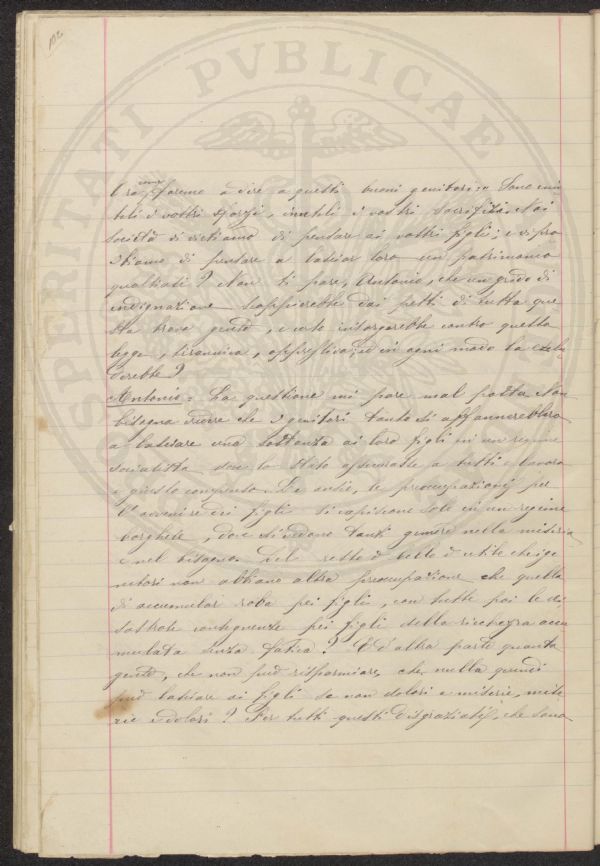 102
PROSPERITATI PVBLICAE
come
Ora faremo a dire a questi buoni genitori: Sono inu
tili i vostri sforzi, inutili i vostri sacrifizi. Noi
società di vietiamo di pensare ai vostri figli; e vi proi
biamo di pensare a lasciar loro un patrimonio
qualsiasi? Non ti pare, Antonio, che un grido di
indignazione scoppierebbe dai petti di tutta que
sta brava gente, e certo insorgerebbe contro questa
legge, tirannica, oppressiva, ed in ogni modo la
derebbe?
Antonio: La questione mi pare mal posta. Non
bisogna credere che i genitori tanto si affannerebbero
a lasciare una sostanza ai loro figli in un regime
socialista dove lo Stato assicurasse a tutti e lavoro
e giusto compenso. Le ansie, le preoccupazioni per
l'avvenire dei figli si capiscono solo in un regime
borghese, dove si vedono tanti gemere nella miseria
e nel bisogno. Del resto è bello è utile che i ge
nitori non abbiano altra preoccupazione che quella
di accumular roba pei figli, con tutte poi le di
sastrose conseguenze pei figli della ricchezza accu
mulata senza fatica? E d'altra parte quanta
gente, che non può risparmiare, che nulla quindi
può lasciare ai figli se non dolori e miserie, mise
rie e dolori? Per tutti questi disgraziati, che sono